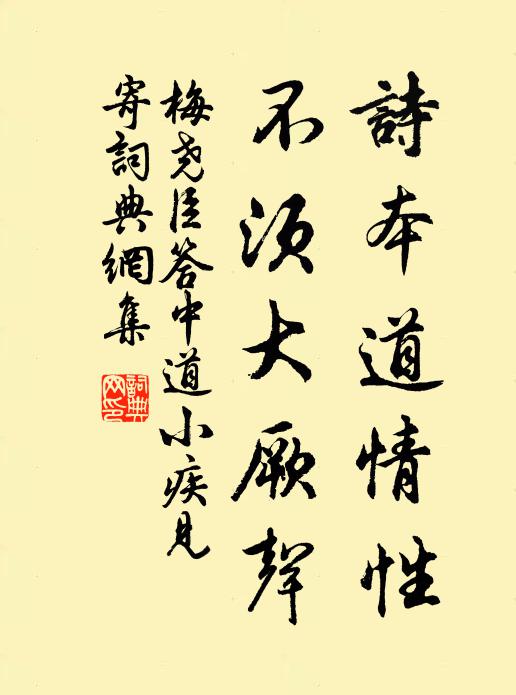 詩本道情性
不須大厥聲
梅尧臣答中道小疾見
寄詞典網集
詞典
网印